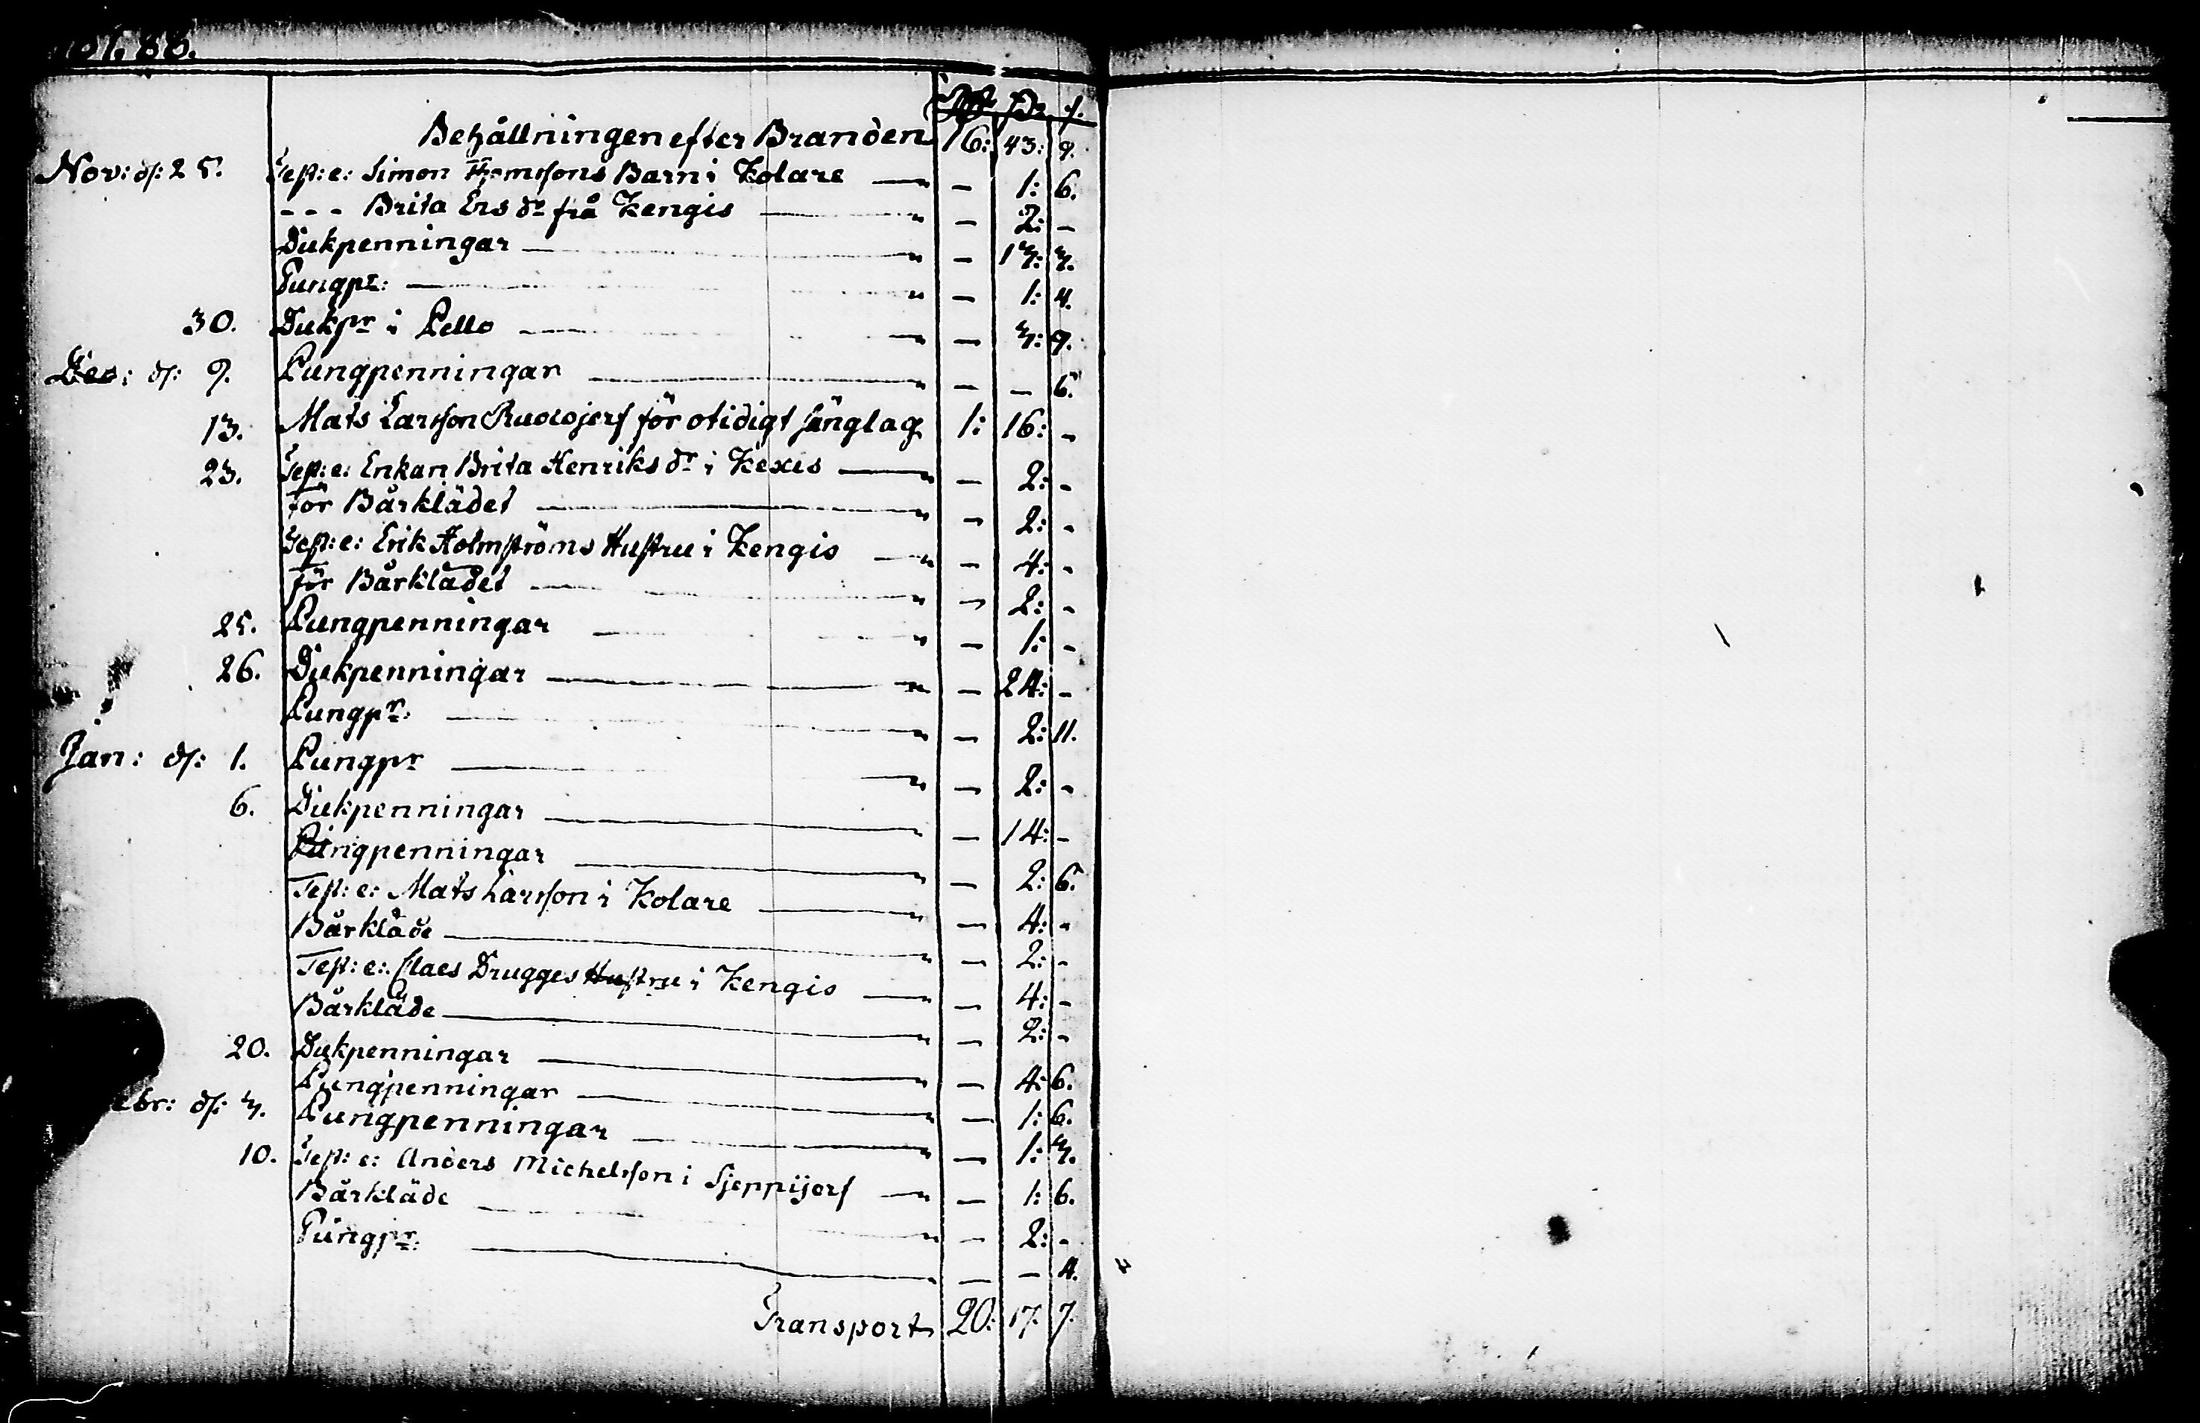 Behållningen efter Branden 16: 43: 9.
Nov: d: 25. Test: e: Simon Thomssons Barn i Kolare — 1: 6.
- - - Brita Ers dr frå Kengis — 2: -
Dukpenningar — 17: 7.
Pungpr: — 1: 4.
30. Dukpr i Pello — 7: 9.
Dec: d: 9. Pungpenningar — — 6.
13. Mats Larsson Ruokojerf för otidigt sänglag 1: 16: -
23. Test: e: Enkan Brita Henriks dr i Kexis — 2: -
för Bårklädet — 2: -
Test: e: Erik Holmströms Hustru i Kengis — 4: -
för Bårklädet — 2: -
25. Pungpenningar — 1: -
26. Dukpenningar — 24: -
Pungpr: — 2: 11.
Jan: d: 1. Pungpr — 2: -
6. Dukpenningar — 14: -
Pungpenningar — 2: 6.
Test: e: Mats Larsson i Kolare — 4: -
Bårkläde — 2: -
Test: e: Claes Drugges Hustru i Kengis — 4: -
Bårkläde — 2: -
20. Dukpenningar — 4: 6.
Pungpenningar — 1: 6.
ebr: d: 7. Pungpenningar — 1: 7.
10. Test: e: Anders Michelsson i Sjeppijerf — 1: 6.
Bårkläde — 2: -
Pungpr: — — 4.
Transport 20: 17: 7.